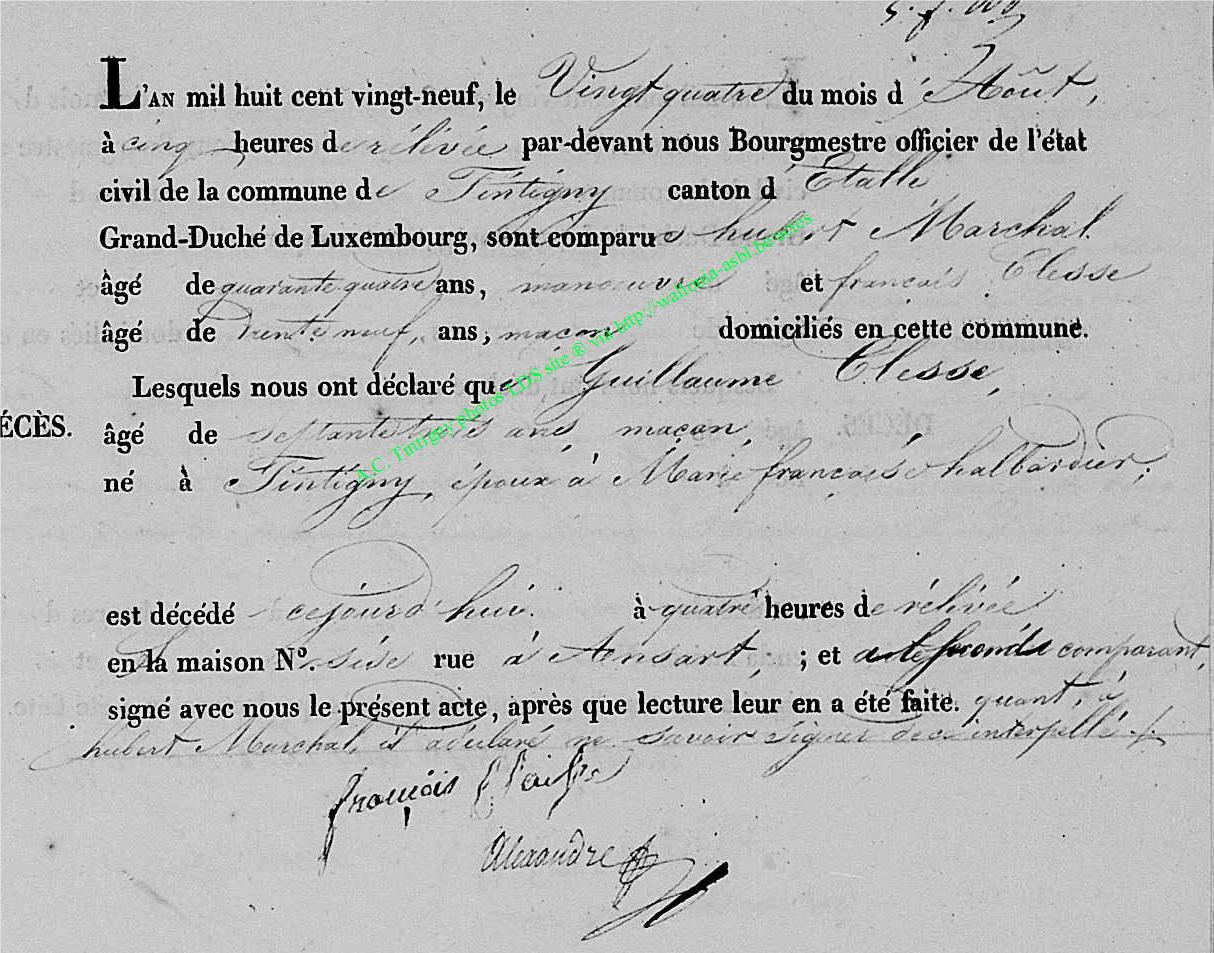 L'AN mil huit cent vingt-neuf, le Vingt quatre du mois d'Août,
à cinq heures de rélivée par-devant nous Bourgmestre officier de l'état
civil de la commune de Tintigny canton d'Etalle
Grand-Duché de Luxembourg, sont comparus hubert Marchal
âgé de quarante quatre ans, manoeuvre et françois Clesse
âgé de trente neuf, ans, maçon domiciliés en cette commune.
Lesquels nous ont déclaré que Guillaume Clesse,
ÉCÈS. âgé de septante trois ans, maçon,
né à Tintigny, époux à Marie françoise halbardier;
est décédé cejourd'hui à quatre heures de rélivée
en la maison N°. sise rue à Ansart, ; et a le second comparant,
signé avec nous le présent acte, après que lecture leur en a été faite. quant, à
hubert Marchal, il a déclaré ne savoir signer de ce interpellé
françois
Alexandre
A.C. Tintigny photos LDS site ® via http://wallonia-asbl.be/actes